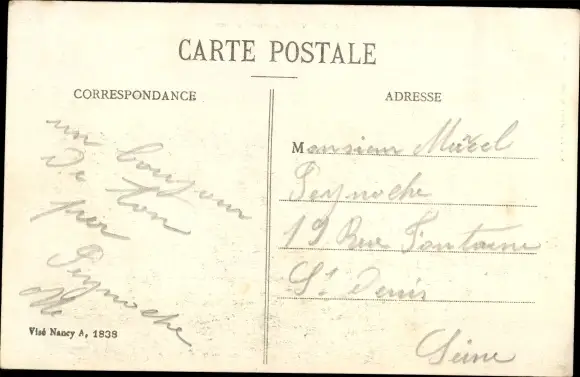 CARTE POSTALE
CORRESPONDANCE
un bonjour
De ton
per
Peynoche
Visé Nancy A, 1838
ADRESSE
Monsieur
Peynoche
19 Rue Fontaine
St Denis
Seine